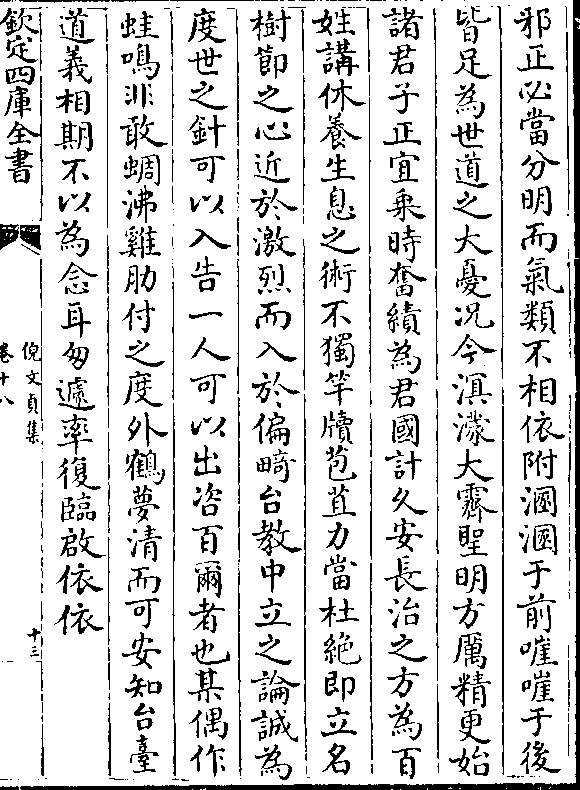 邪正必當分明而氣類不相依附溷溷于前嚾嚾于後
皆足為世道之大憂况今溟濛大霽聖明方厲精更始
諸君子正宜乗時奮績為君國計久安長治之方為百
姓講休養生息之術不獨竿牘苞苴力當杜絶即立名
樹節之心近於激烈而入於偏畸台教中立之論誠為
度世之針可以入告一人可以出咨百爾者也某偶作
蛙鳴非敢蜩沸雞肋付之度外鶴夢清而可安知台臺
道義相期不以為念耳匆遽率復臨啟依依
欽定四庫全書
倪文貞集
卷十八
十三